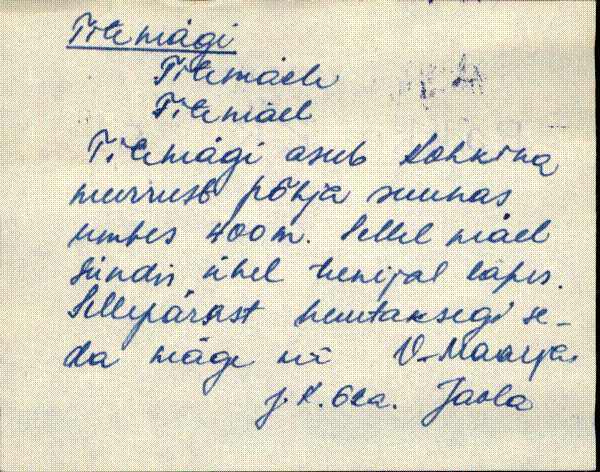 Titemägi
Titemäele
Titemäel
Titemägi asub Kohkina
murrust põhja suunas
umbes 400 m. Sellel mäel
sündis ühel tenijal laps.
Sellepärast kutsutaksegi se-
da mäge nii V-Maarja.
j. K. 62a. Jaola